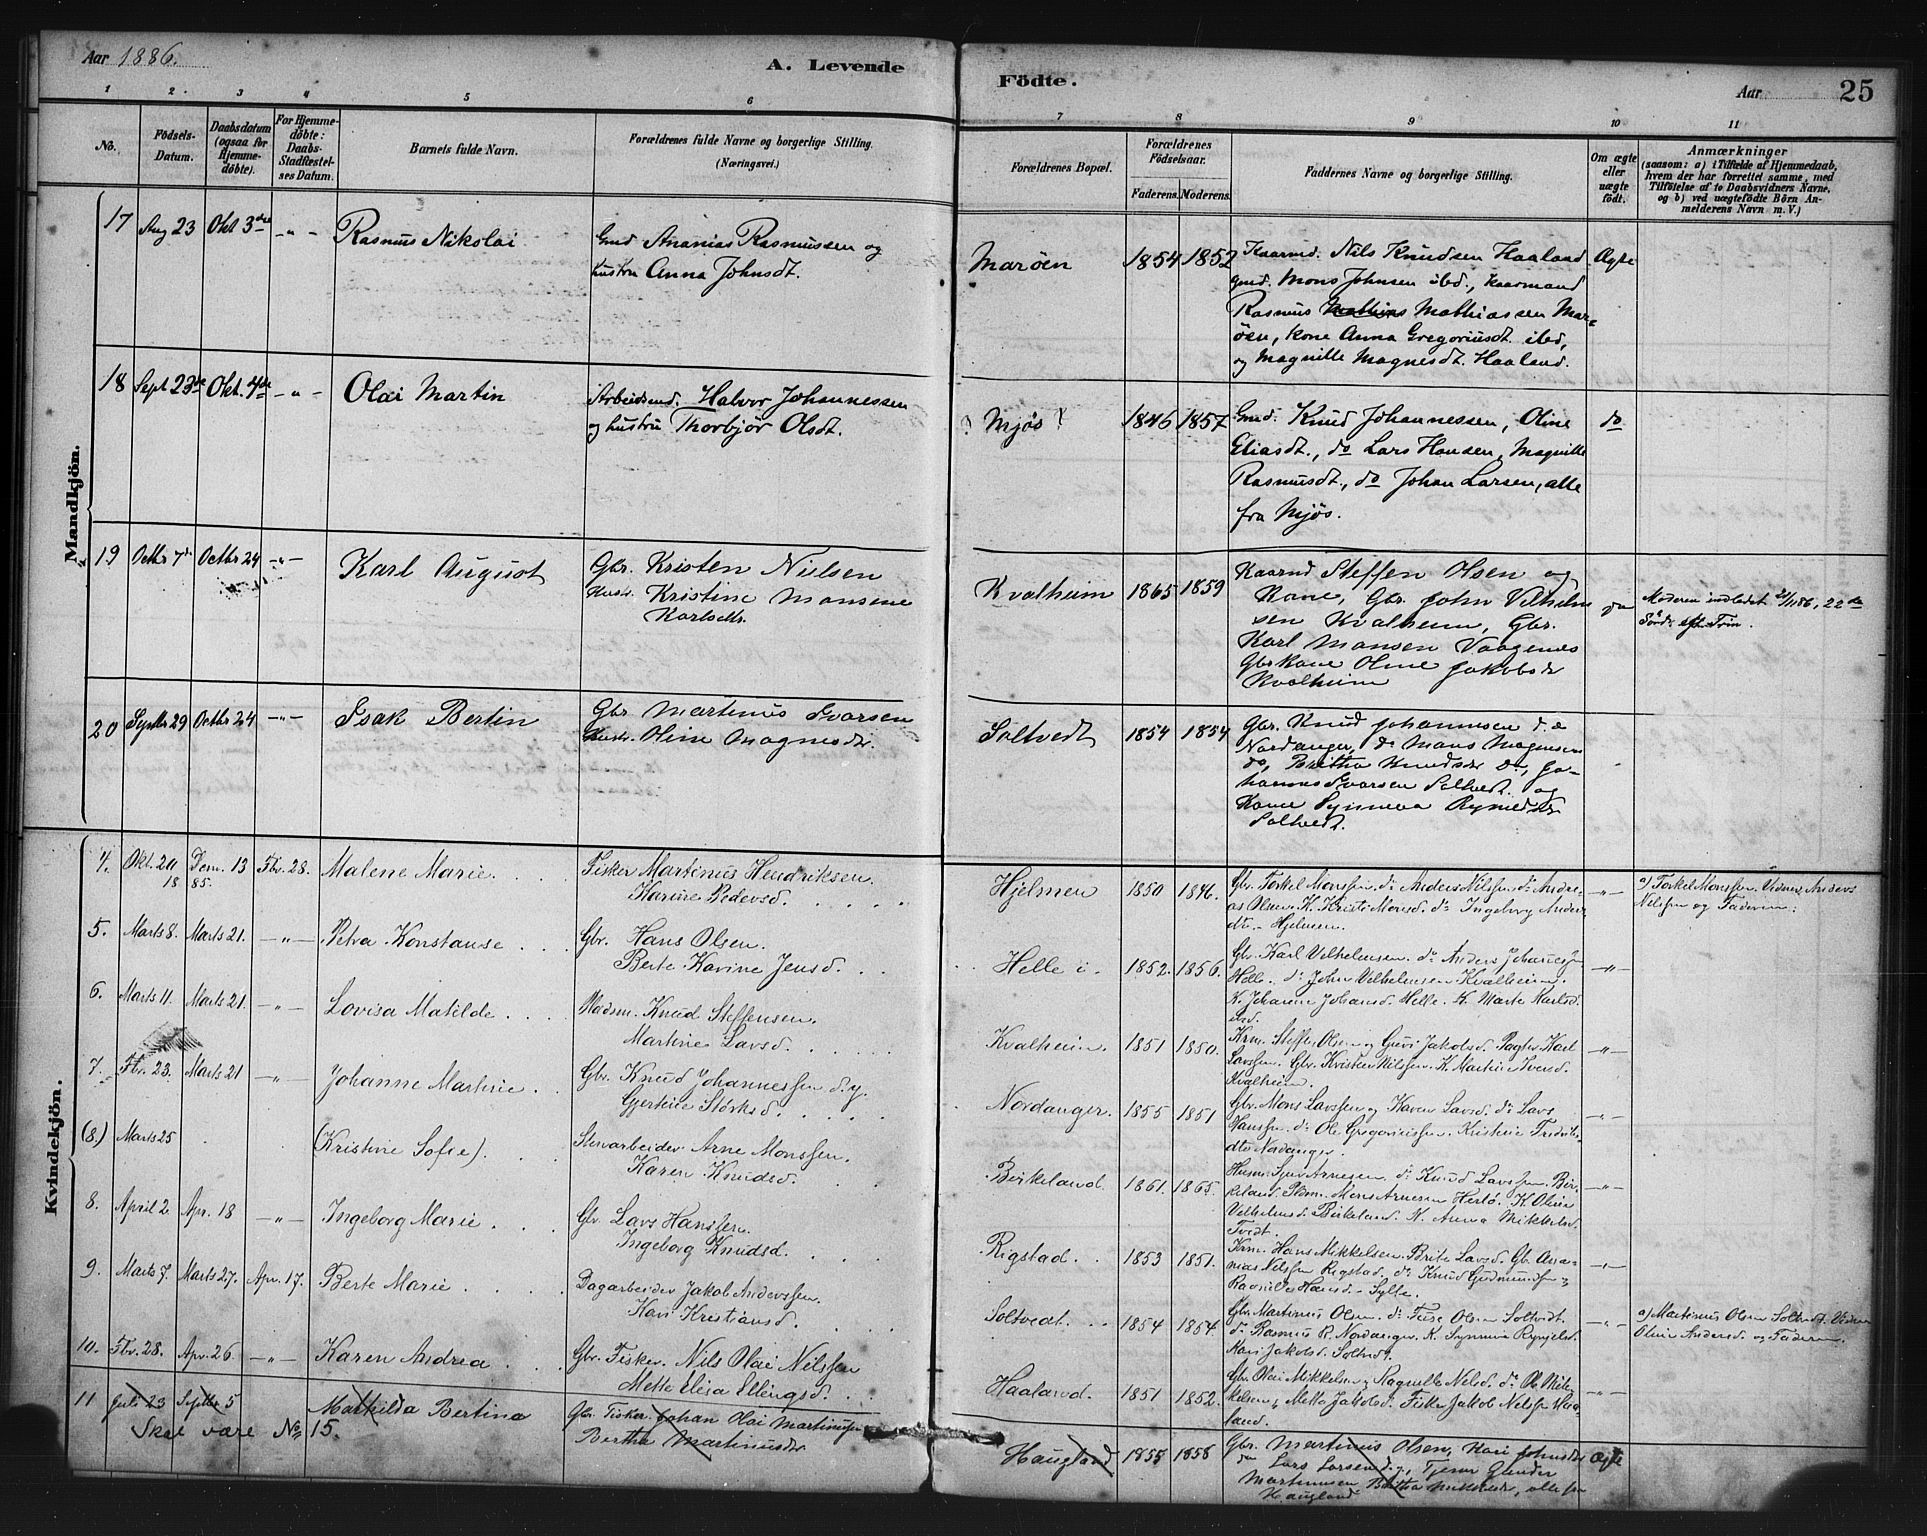 Aar 1886.
A. Levende
Födte.
Aar
25
1 2. 3 4 5 6
7 8 9 10 11
No.
Födsels-
Datum.
Daabsdatum
(ogsaa for
Hjemme-
döbte).
For Hjemme-
döbte:
Daabs-
Stadfæstel-
ses Datum.
Barnets fulde Navn.
Forældrenes fulde Navne og borgerlige Stilling.
(Næringsvei.)
Forældrenes Bopæl.
Forældrenes
Födselsaar.
Faderens. Moderens.
Faddernes Navne og borgerlige Stilling.
Om ægte
eller
uægte
födt.
Anmærkninger
(saasom: a) i Tilfælde af Hjemmedaab,
hvem der har forrettet samme, med
Tilföielse af to Daabsvidners Navne,
og b) ved uægtefödte Börn An-
melderens Navn m. V.)
Mandkjön.
17 Aug 23 Okt 3die - " - Rasmus Nikolai
Gmd Ananias Rasmussen og
hustru Anna Johnsdt.
Marøen 1854 1852
Kaarmd. Nils Knudsen Haaland
Gmd. Mons Johnsen ibd., Kaarmand
Rasmus Mathias Mathiassen Mar-
øen, kone Anna Gregoriusdt ibd,
og Magnille Magnesdt. Haaland.
Ægte
18 Sept 23de Okt. 4de - " - Olai Martin
Arbeidsmd. Halvor Johannessen
og hustru Thorbjør Olsdt.
? Mjøs ? 1846 1857
Gmd. Knud Johannessen, Oline
Eliasdt., do Lars Hansen, Magnille
Rasmusdt., do Johan Larsen, alle
fra Mjøs.
do
19 Octbr 7de Octbr 24 - " - Karl August
Gbr. Kristen Nielsen
Hustr. Kristine Monsine
Karlsdtr.
Kvalheim 1865 1859
Kaarmd Steffen Olsen og
Kone, Gbr. John Vilhelm
sen Kvalheim, Gbr.
Karl Monsen Vaagenes
Gbrkone Oline Jakobsdr
Kvalheim
do
Moderen indledet 21/11 86, 22de
Sönd. eft. Trin.
20 Septbr 29 Octbr 24 - " - Isak Bertin
Gbr Martinus Ivarsen
Hustr. Oline Magnesdr.
Soltvedt 1854 1854
Gbr. Knud Johannesen d.æ
Nordanger, do Mons Magnesen
do, Britha Knudsdr do, Jo-
hannes Ivarsen Soltvedt og
Kone Synneva Rynieldsdr
Soltvedt.
Kvindekjön.
4. Okt. 20 Decm. 13 Fbr. 28. Malene Marie.
18 85.
Fisker Martinus Hendriksen.
Karine Pedersd.
Hjelmen 1850 1846.
Gbr. Torkel Monssen. do Anders Nilssen do Andre-
as Olsen. K. Kristi Monsd. do Ingeborg Anders
dtr. Hjelmen.
- " -
a) Torkel Monssen Vidner, Anders
Nilssen og Faderen.
5. Marts 8. Marts 21. - " - Petra Konstanse
Gbr. Hans Olsen.
Berte Karine Jensd.
Helle i. 1852. 1856.
Gbr. Karl Vilhelmsen. do Anders Johannessen
Helle. do John Vilhelmsen Kvalheim.
K. Johanne Johansd. Helle. K. Marte Karlsd.
ibd.
- " -
6. Marts 11. Marts 21. - " - Lovisa Matilde
Pladsm. Knud Steffensen.
Martine Larsd.
Kvalheim. 1851 1850.
Krm. Steffen Olsen og Guri Jakobsd. Pagter Karl
Larssen. Gbr. Kristen Nilssen. K. Martine Iversd.
Kvalheim.
- " -
7. Fbr. 23. Marts 21 - " - Johanne Martine
Gbr. Knud Johannessen d.y.
Gjertine Størksd.
Nordanger. 1855 1851
Gbr. Mons Larssen og Karen Larsd. do Lars
Hanssen. do Ole Gregoriussen. Kristine Fredriks
dtr Nordanger.
- " -
(8.) Marts 25 (Kristine Sofie).
Stenarbeider Arne Monssen.
Karen Knudsd.
Birkeland. 1861. 1865.
Husm. Sjur Arnesen do Knud Larssen Bir-
keland. Pldsm. Mons Arnesen Herlö. K. Olina
Vilhelmsd. Birkeland. K. Anna Mikkelsd.
Tvedt.
- " -
8. April 2. Apr. 18 - " - Ingeborg Marie
Gbr Lars Hanssen
Ingeborg Knudsd.
Rigstad. 1853 1851.
Krm. Hans Mikkelsen. Brite Larsd. Gb. Ana-
nias Nilssen Rigstad. do Knud Gudmundsen og
Ragnille Hansd. Sylte.
- " -
9. Marts 7. Marts 27. Apr. 17. Berte Marie
Dagarbeider Jakob Anderssen.
Kari Kristiansd.
Soltvedt. 1854 1854
Gbr. Martinus Olsen. do Ture Olsen Soltvedt.
do Rasmus R. Nordanger. K. Synneva Rynjelsd.
Kari Jakobsd. Soltvedt.
- " -
a) Martinus Olsen Soltvedt. Vidner
Oline Andersd. og Faderen.
10. Fbr. 28. Apr. 26 - " - Karen Andrea
Gbr. Fisker. Nils Olai Nilssen
Mette Elisa Ellingsd.
Haaland. 1851 1852.
Gbr. Olai Mikkelsen og Ragnille Nilsd. do Ole Mik-
kelsen, Mette Jakobsd. Fisker Jakob Nilssen Haa-
land.
- " -
11 Juli 23 Septbr. 5 Mathilda Bertina
Skal være No 15.
Gbr. Fisker. Johan Olai Martinussen
Bertha Martinusdtr
Haugland 1855 1858
Gbr. Martinus Olsen, Kari Johnsdtr
do Lars Larsen d.y., Tjener Gunder
Martinusen Britha Mikkelsdr, alle fra
Haugland
Ægte